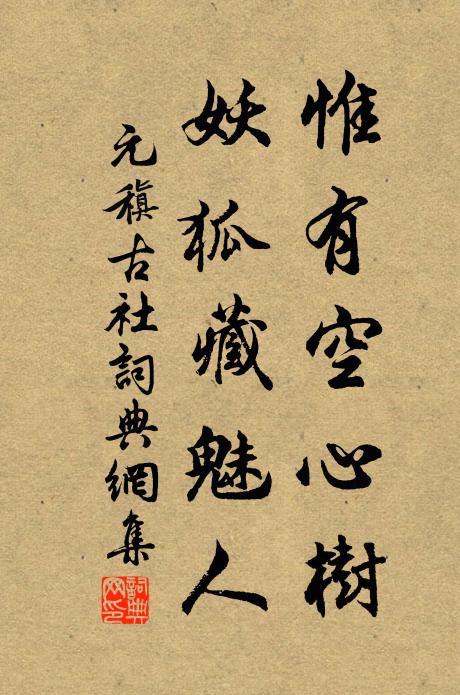 惟有空心樹
妖狐藏魅人
元稹古社詞典網集
詞典网印